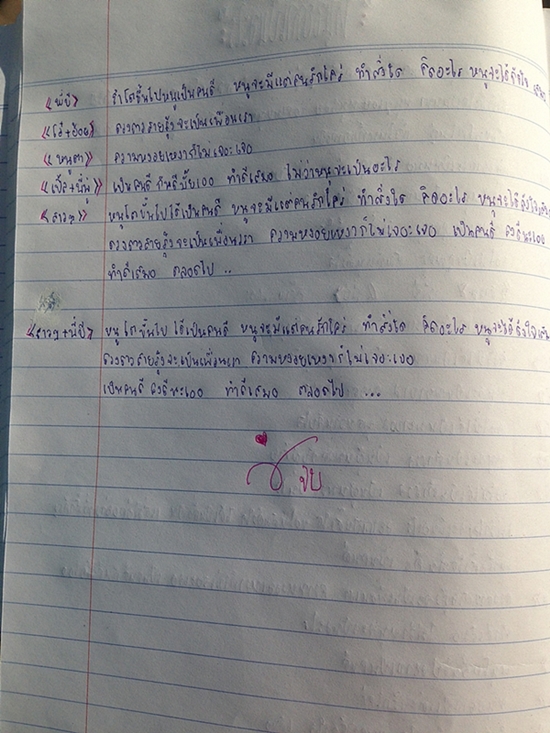 «พี่ปี» ถ้าโตขึ้นไปหนูเป็นคนดี หนูจะมีแต่คนรักใคร่ ทำสิ่งใด คิดอะไร หนูจะได้ดั่งใจ
ดวงดาวสายรุ้งจะเป็นเพื่อนเรา
ความหงอยเหงาก็ไม่เจอะเจอ
เป็นคนดี ทำดีเสมอ ไม่ว่าหนูจะเป็นอะไร
«สาวๆ» หนูโตขึ้นไปได้เป็นคนดี หนูจะมีแต่คนรักใคร่ ทำสิ่งใด คิดอะไร หนูจะได้ดั่งใจ
ดวงดาวสายรุ้งจะเป็นเพื่อนเรา ความหงอยเหงาก็ไม่เจอะเจอ เป็นคนดี
ทำดีเสมอ ตลอดไป ..
หนูโตขึ้นไป ได้เป็นคนดี หนูจะมีแต่คนรักใคร่ ทำสิ่งใด คิดอะไร หนูจะได้ดั่งใจ
ดวงดาวสายรุ้งจะเป็นเพื่อนเรา ความหงอยเหงาก็ไม่เจอะเจอ
เป็นคนดี ทำดีเสมอ ตลอดไป ...
จบ